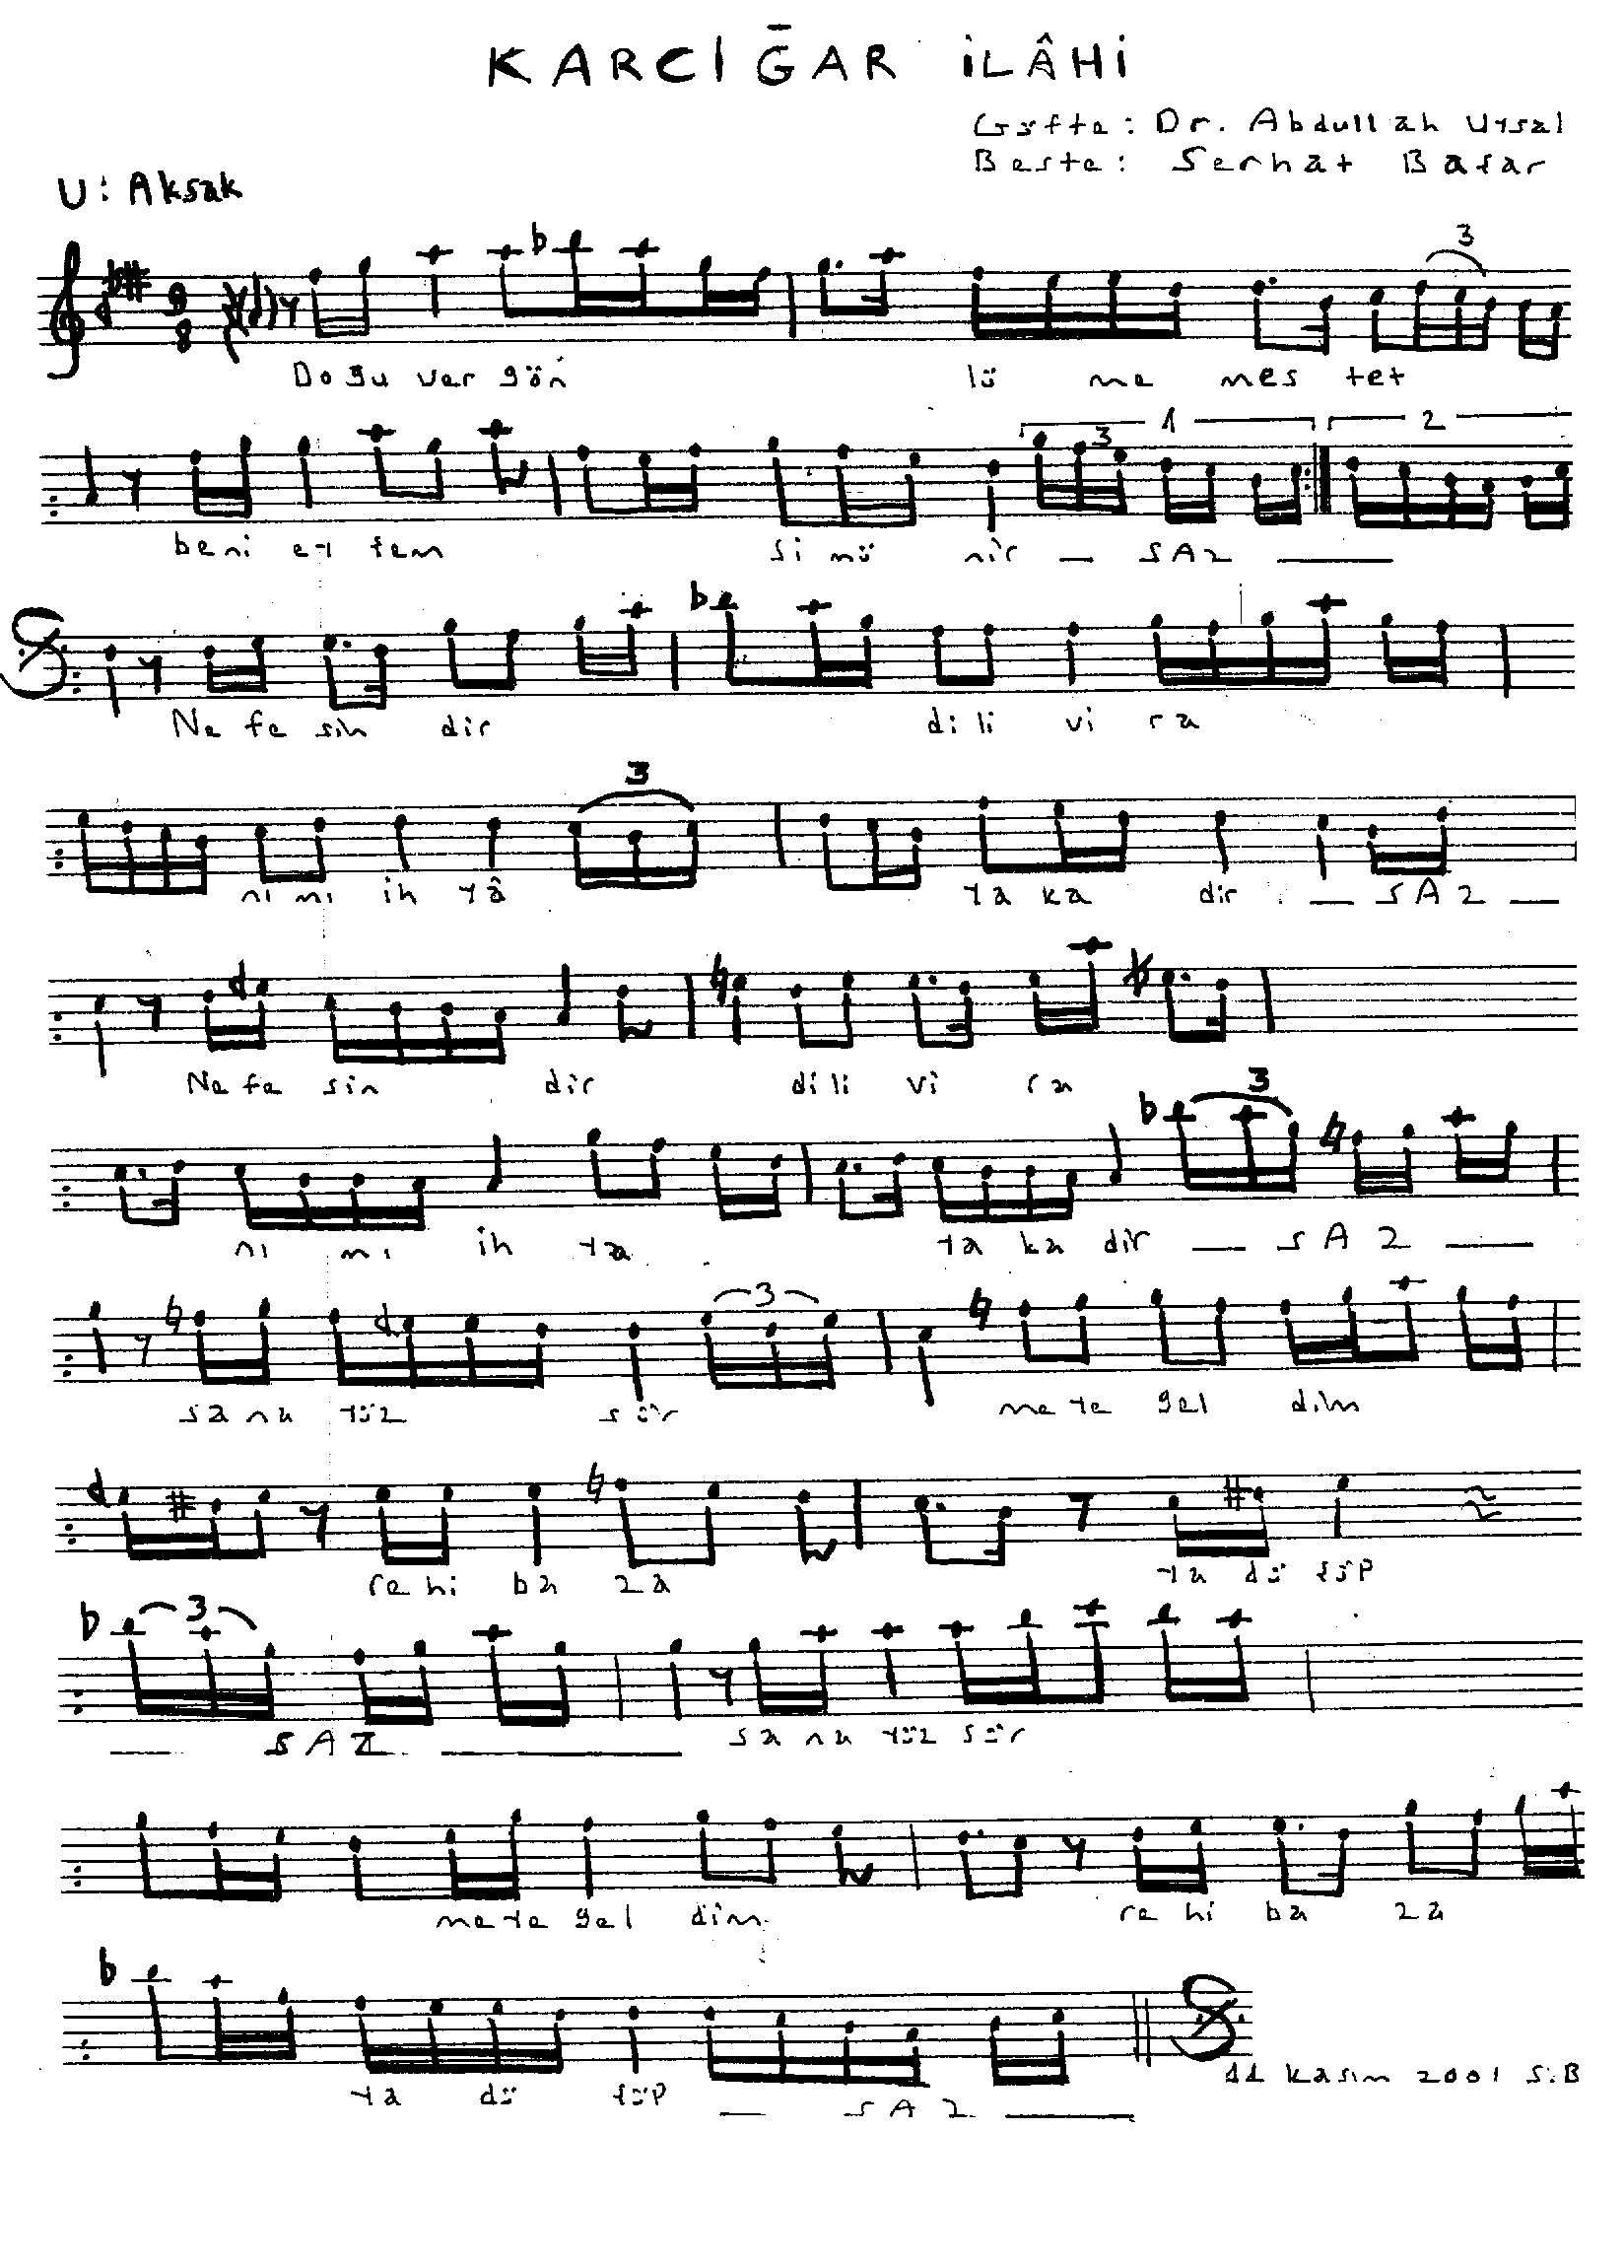 KARCIĞAR İLÂHİ
Güfte: Dr. Abdullah Uysal
Beste: Serhat Başar
U: Aksak
9
8
3
Doğu ver gön lü me mes tet
3 1 2
beni ey şem si mü nîr SAZ
Ne fe sin dir di li vi ra
3
nı mı ih yâ ya ka dir SAZ
Ne fe sin dir di li vi ra
3
nı mı ih ya ya ka dir SAZ
3
sa na yüz sür me ye gel dim
re hi ba za ya dü şüp
3
SAZ sa na yüz sür
me ye gel dim re hi ba za
ya dü şüp SAZ
11 Kasım 2001 S.B